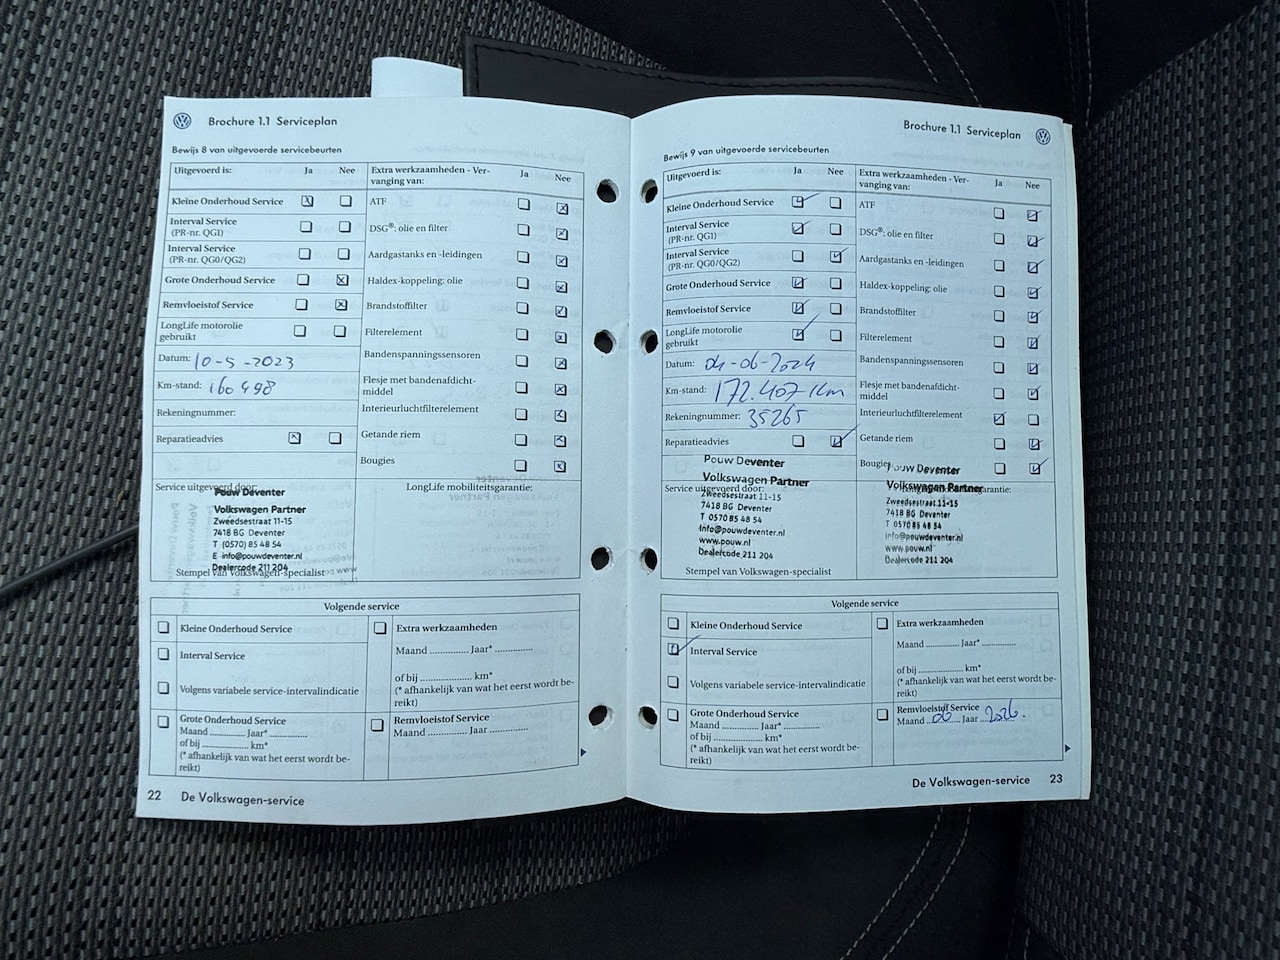 Brochure 1.1 Serviceplan
Bewijs 8 van uitgevoerde servicebeurten
Uitgevoerd is: Ja Nee
Kleine Onderhoud Service
Interval Service
(PR-nr. QG1)
Interval Service
(PR-nr. QG0/QG2)
Grote Onderhoud Service
Remvloeistof Service
LongLife motorolie
gebruikt
Datum: 10-5-2023
Km-stand: 160498
Rekeningnummer:
Reparatieadvies
Extra werkzaamheden - Ver-
vanging van: Ja Nee
ATF
DSG®: olie en filter
Aardgastanks en -leidingen
Haldex-koppeling: olie
Brandstoffilter
Filterelement
Bandenspanningssensoren
Flesje met bandenafdicht-
middel
Interieurluchtfilterelement
Getande riem
Bougies
Service uitgevoerd door:
Pouw Deventer
Volkswagen Partner
Zweedsestraat 11-15
7418 BG Deventer
T (0570) 85 48 54
E info@pouwdeventer.nl
Dealercode 211 204
Stempel van Volkswagen-specialist
LongLife mobiliteitsgarantie:
Volgende service
Kleine Onderhoud Service
Interval Service
Volgens variabele service-intervalindicatie
Grote Onderhoud Service
Maand ............ Jaar* ...............
of bij ................ km*
(* afhankelijk van wat het eerst wordt be-
reikt)
Extra werkzaamheden
Maand ............ Jaar* ...............
of bij ................ km*
(* afhankelijk van wat het eerst wordt be-
reikt)
Remvloeistof Service
Maand ............ Jaar ...............
22 De Volkswagen-service
Brochure 1.1 Serviceplan
Bewijs 9 van uitgevoerde servicebeurten
Uitgevoerd is: Ja Nee
Kleine Onderhoud Service
Interval Service
(PR-nr. QG1)
Interval Service
(PR-nr. QG0/QG2)
Grote Onderhoud Service
Remvloeistof Service
LongLife motorolie
gebruikt
Datum: 04-06-2024
Km-stand: 172.407 km
Rekeningnummer: 35265
Reparatieadvies
Extra werkzaamheden - Ver-
vanging van: Ja Nee
ATF
DSG®: olie en filter
Aardgastanks en -leidingen
Haldex-koppeling: olie
Brandstoffilter
Filterelement
Bandenspanningssensoren
Flesje met bandenafdicht-
middel
Interieurluchtfilterelement
Getande riem
Bougies
Service uitgevoerd door:
Pouw Deventer
Volkswagen Partner
Zweedsestraat 11-15
7418 BG Deventer
T 0570 85 48 54
info@pouwdeventer.nl
www.pouw.nl
Dealercode 211 204
Stempel van Volkswagen-specialist
Pouw Deventer
Volkswagen Partner
Zweedsestraat 11-15
7418 BG Deventer
T 0570 85 48 54
info@pouwdeventer.nl
www.pouw.nl
Dealercode 211 204
Volgende service
Kleine Onderhoud Service
Interval Service
Volgens variabele service-intervalindicatie
Grote Onderhoud Service
Maand ............ Jaar* ...............
of bij ................ km*
(* afhankelijk van wat het eerst wordt be-
reikt)
Extra werkzaamheden
Maand ............ Jaar* ...............
of bij ................ km*
(* afhankelijk van wat het eerst wordt be-
reikt)
Remvloeistof Service
Maand 06 Jaar 2026.
De Volkswagen-service 23